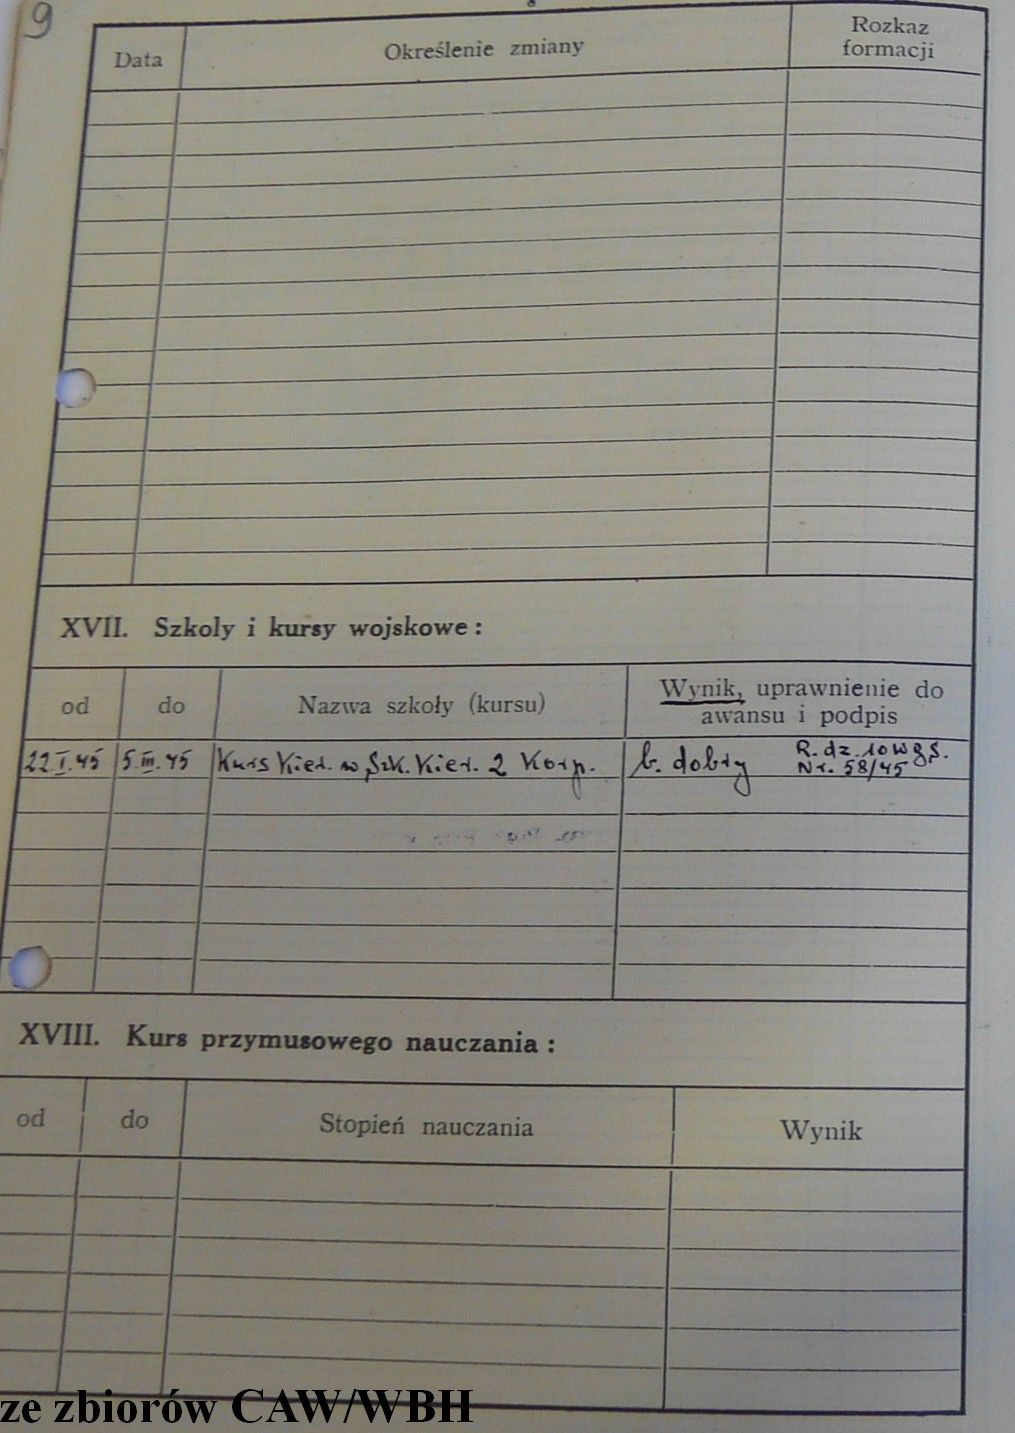 9
Data
Określenie zmiany
Rozkaz
formacji
XVII. Szkoły i kursy wojskowe :
od
do
Nazwa szkoły (kursu)
Wynik, uprawnienie do
awansu i podpis
22.I.45
5.III.45
Kurs Kier. w Szk. Kier. 2 Korp.
b. dobry
R. dz. 10 w g s.
Nr. 58/45
XVIII. Kurs przymusowego nauczania :
od
do
Stopień nauczania
Wynik
ze zbiorów CAW/WBH